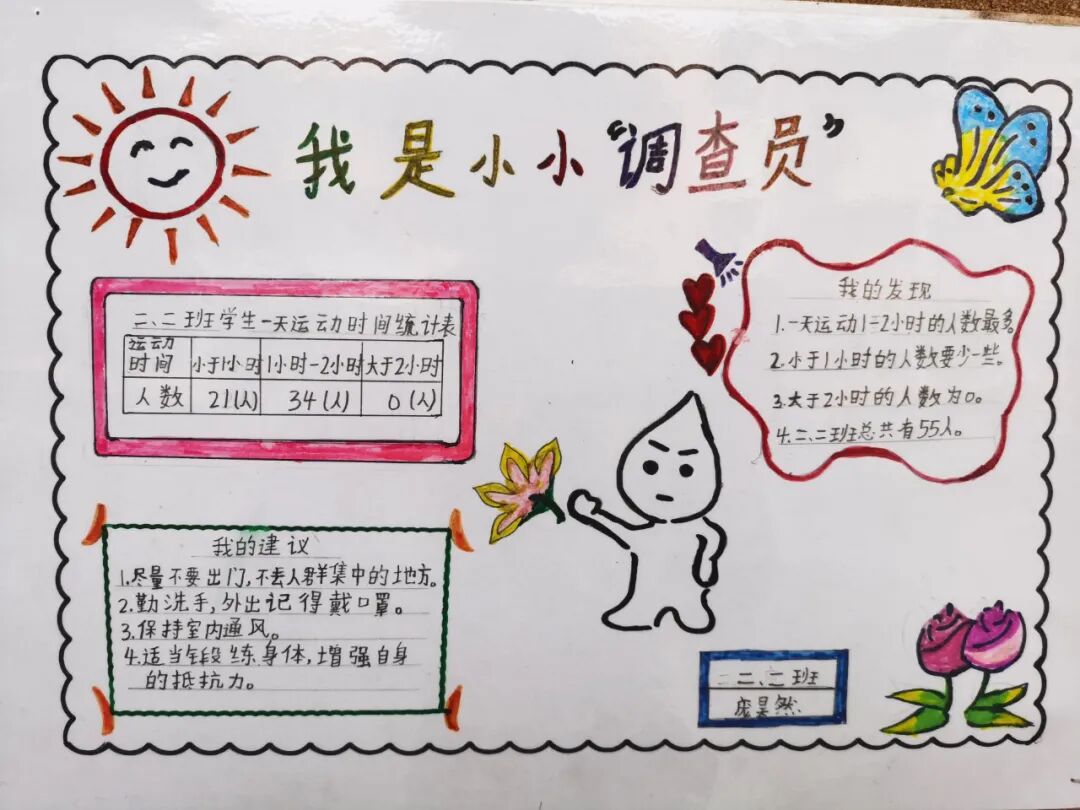 我是小小“调查员”
二、二班学生一天运动时间统计表
运动时间 小于1小时 1小时-2小时 大于2小时
人数 21(人) 34(人) 0(人)
我的发现
1.一天运动1-2小时的人数最多。
2.小于1小时的人数要少一些。
3.大于2小时的人数为0。
4.二、二班总共有55人。
我的建议
1.尽量不要出门,不去人群集中的地方。
2.勤洗手,外出记得戴口罩。
3.保持室内通风。
4.适当锻练身体,增强自身
的抵抗力。
二、二班
庞昊然